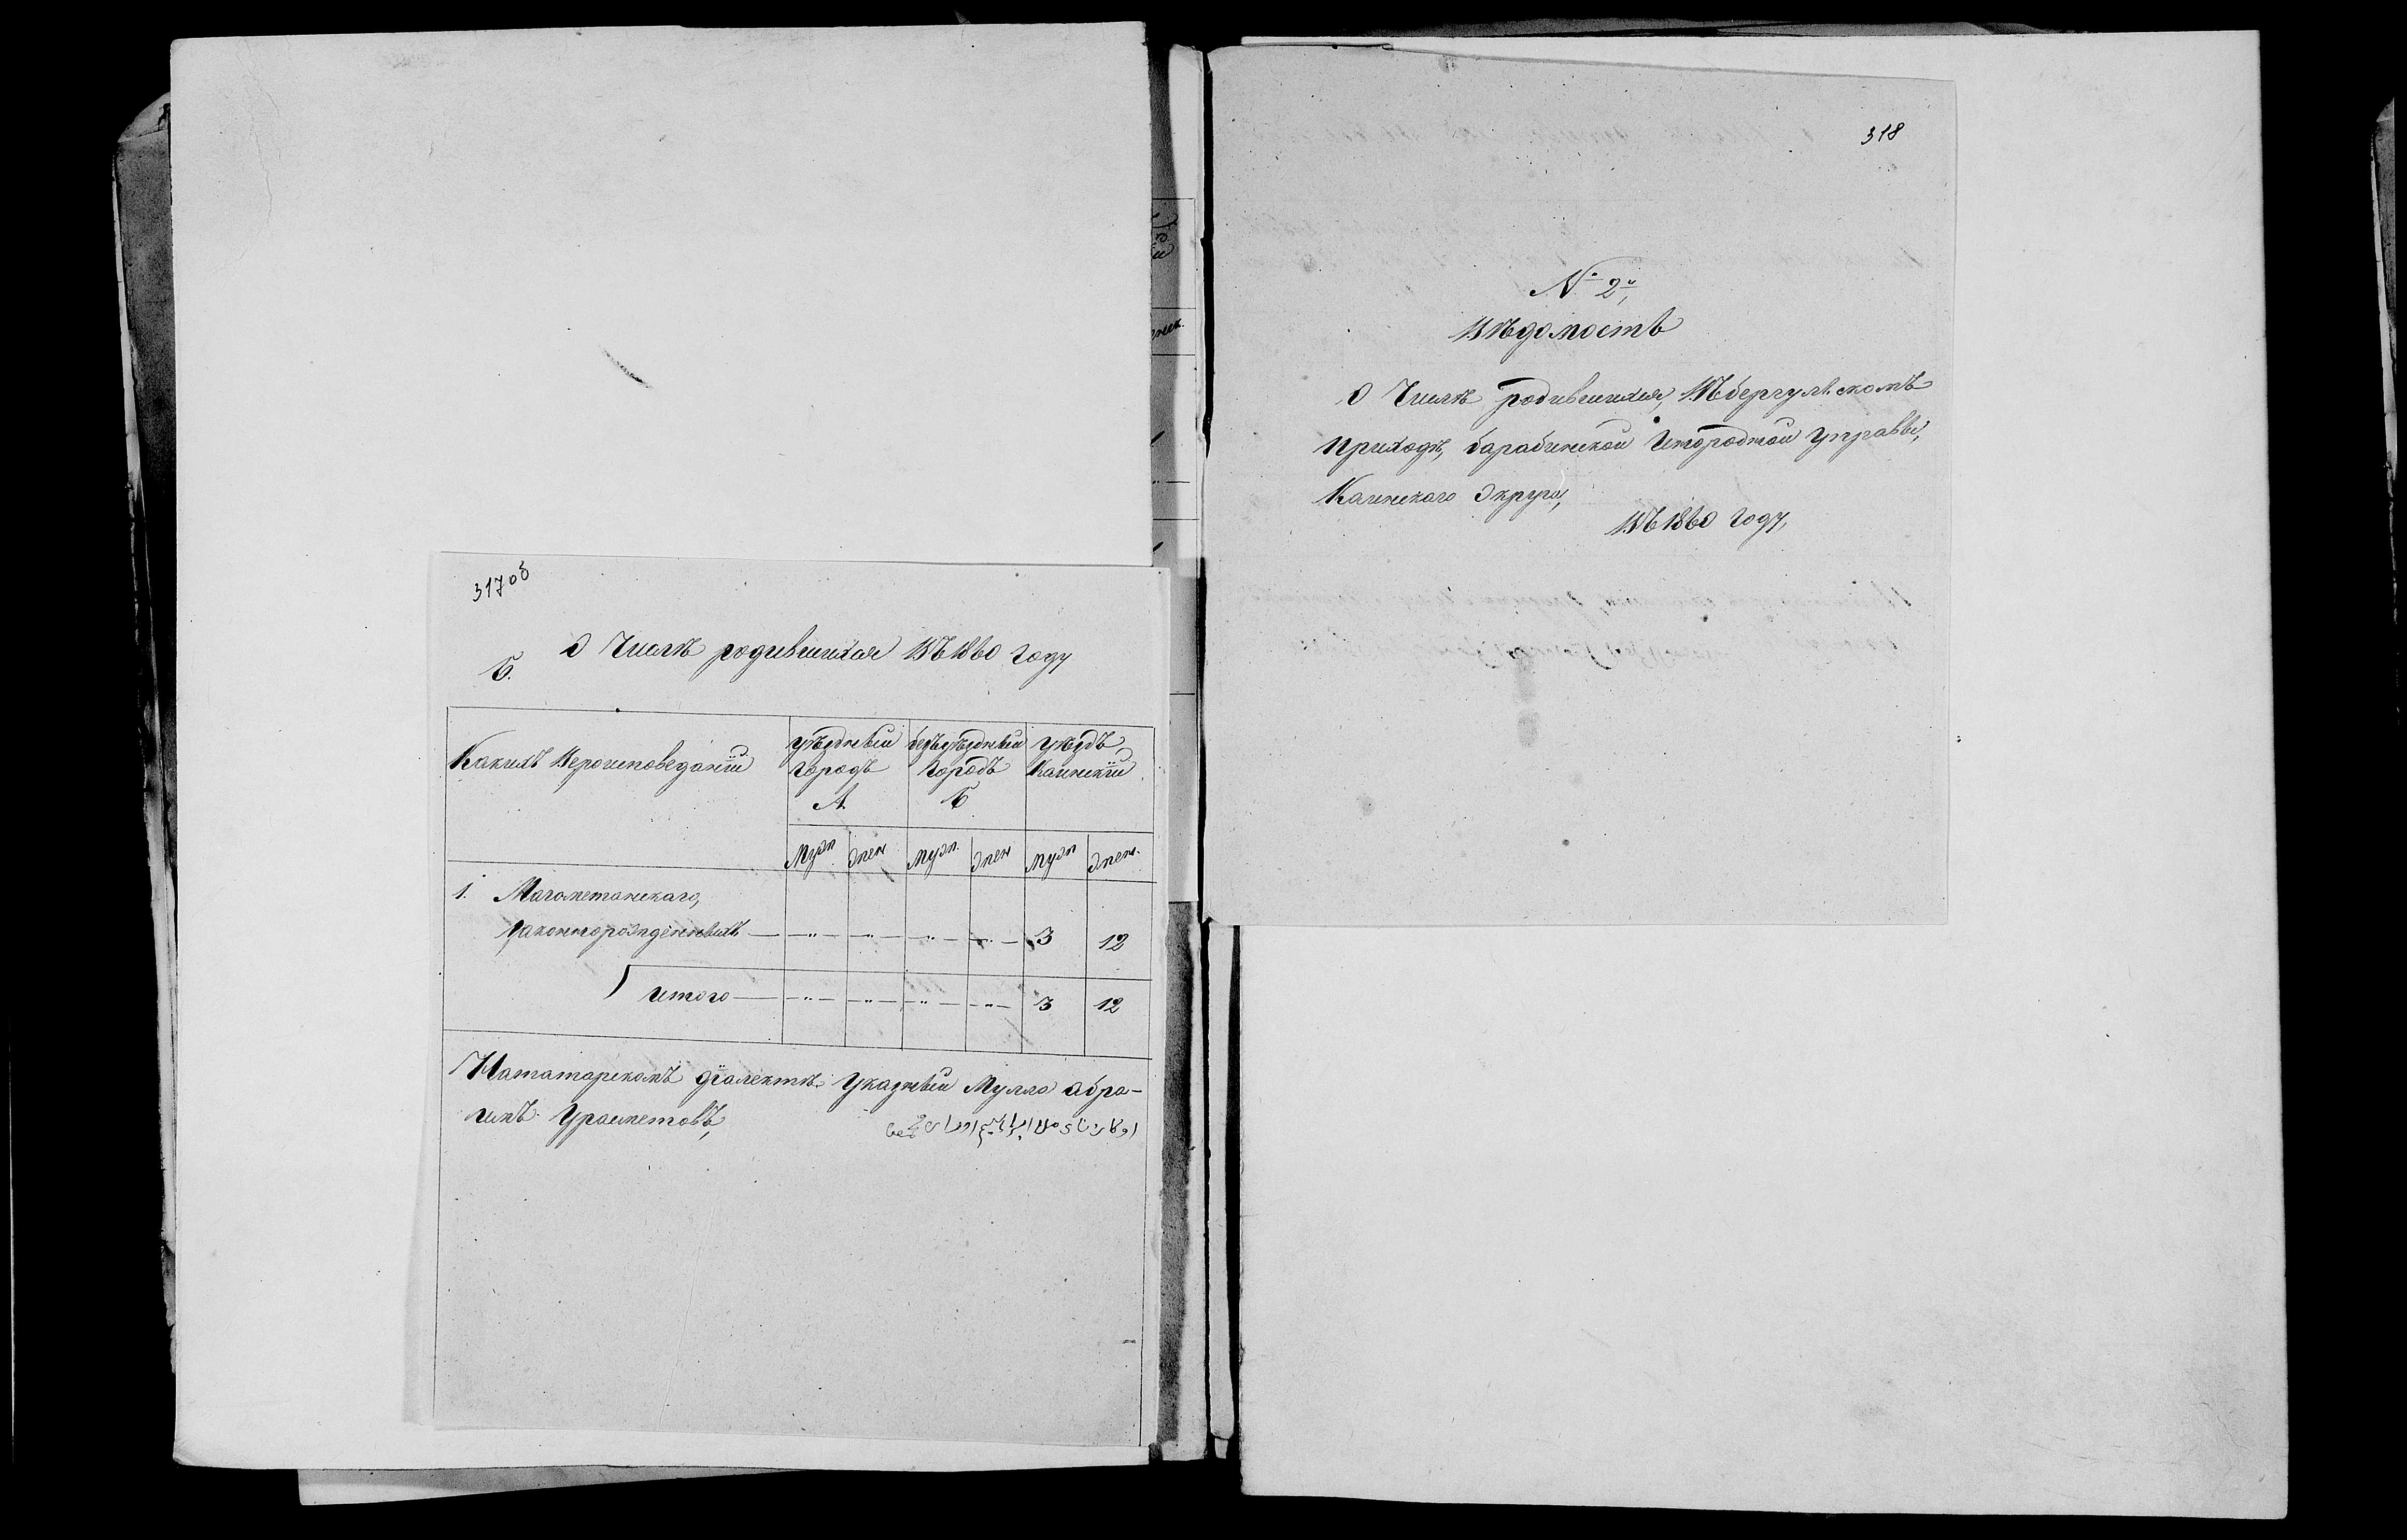 317 об
Б. О Числѣ родившихся въ 1860 году
Какихъ Вероисповеданiй
уѣздный городъ А.
безъуѣздный городъ Б.
уѣздъ Каинскiй
Муж. Жен Муж. Жен Муж Жен.
1. Магометанскаго,
Законнорожденныхъ — „ — „ — „ — „ — 3 12
Итого — „ — „ — „ — „ — 3 12
На татарскомъ дiалектѣ Указный Мулла абра-
гимъ Ураиметовъ,
318
№ 2й,
Вѣдомость
О Числѣ родившихся, Въ бергульскомъ
приходѣ, барабинской Инородной управы,
Каинскаго Округа,
Въ 1860 Году,